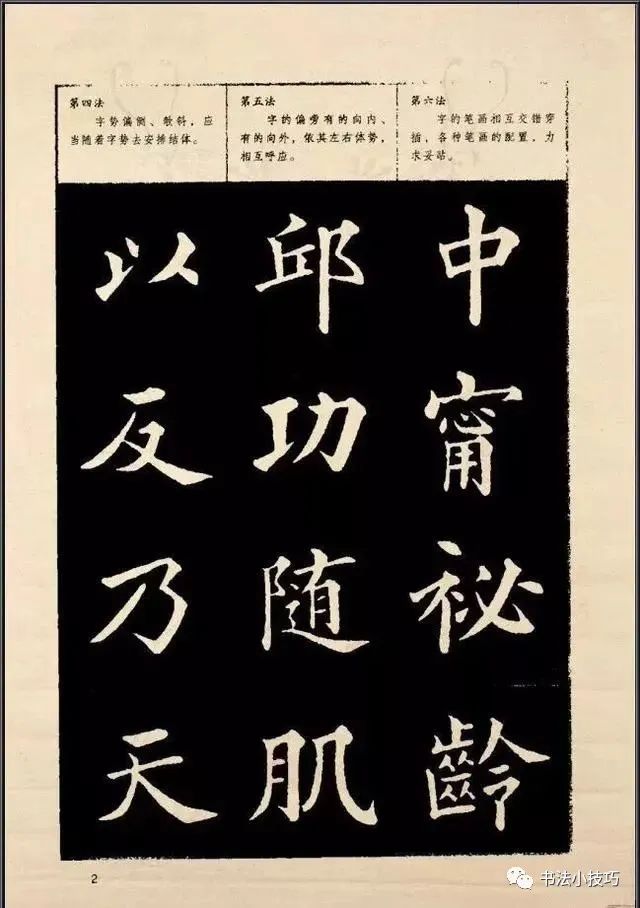 第四法
字势偏侧、欹斜，应
当随着字势去安排结体。
第五法
字的偏旁有的向内、
有的向外，依其左右体势，
相互呼应。
第六法
字的笔画相互交错穿
插，各种笔画的配置，力
求妥贴。
以反乃天
邱功随肌
中甯祕齡
2
书法小技巧